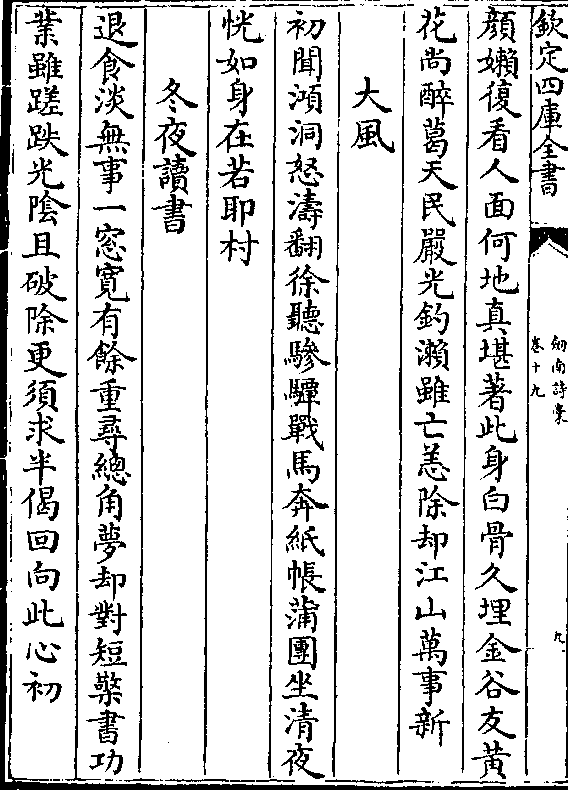 欽定四庫全書
劒南詩槀
卷十九
九
顔嬾復看人面何地真堪著此身白骨久埋金谷友黄
花尚醉葛天民嚴光釣瀬雖亡恙除却江山萬事新
大風
初聞澒洞怒濤翻徐聽驂驔戰馬奔紙帳蒲團坐清夜
恍如身在若耶村
冬夜讀書
退食淡無事一窓寛有餘重尋總角夢却對短檠書功
業雖蹉跌光陰且破除更須求半偈回向此心初